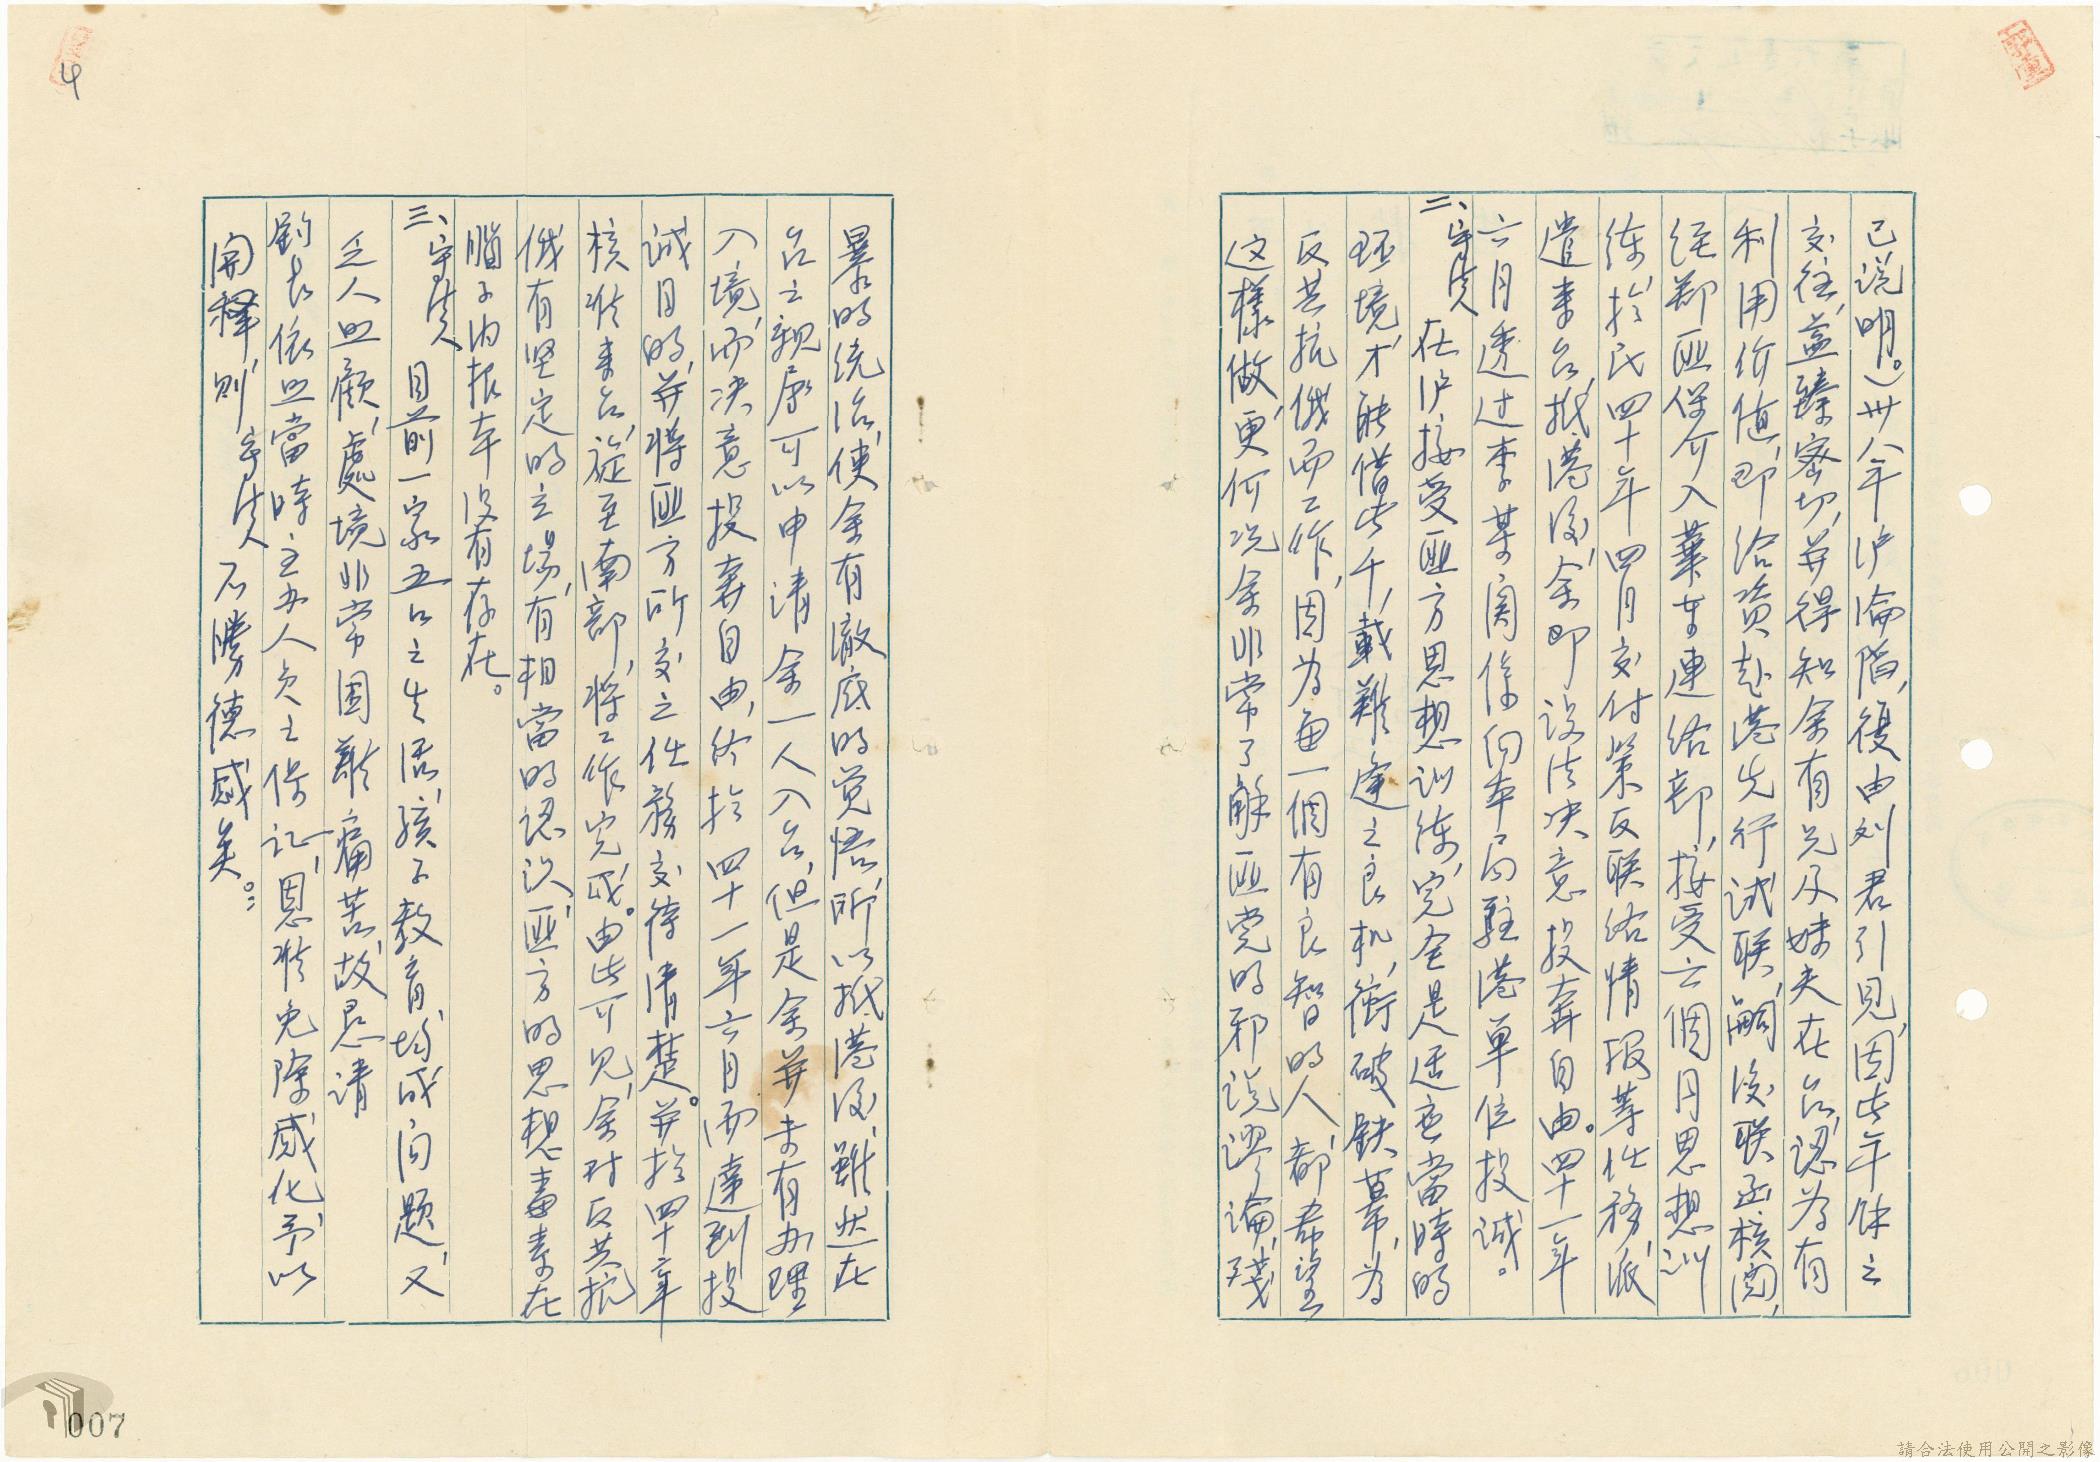 已说明。）卅八年沪淪陷，復由刘君引見，因此年餘之
交往，益臻密切，並得知余有兄及妹夫在台，認为有
利用价值，即给資赴港先行試联，嗣後联函核閱，
经鄭匪保介入華东連络部，接受六個月思想訓
练，於民四十年四月交付策反联络情报等任務，派
遣来台，抵港後，余即設法决意投奔自由。四十一年
六月透过李某関係向本局駐港单位投诚。
二、守法 在沪接受匪方思想訓练，完全是人适应當時的
环境，才能借此千載難逢之良机，衝破鉄幕，为
反共抗俄而工作，因为每一個有良智的人，都希望
这樣做，更何况余非常了解匪党的邪说谬論，殘
暴的统治，使余有澈底的觉悟，所以抵港後，雖然在
台之親属可以申请余一人入台，但是余並未有办理
入境，而决意投奔自由，终於四十一年六月而達到投
诚目的，并將匪方所交之任務交待清楚。并於四十二年
核准来台，旋至南部，將工作完成。由此可见，余对反共抗
俄有坚定的立場，有相當的認识，匪方的思想毒素在
腦子内根本没有存在。
三、守法 目前一家五口之生活，孩子教育，均成问题，又
乏人照顧，處境非常困難痛苦，故恳请
鈞長依照當時主办人负士保记，恩准免除感化，予以
開释，則守法不勝德感矣。
4
007
請合法使用公開之影像